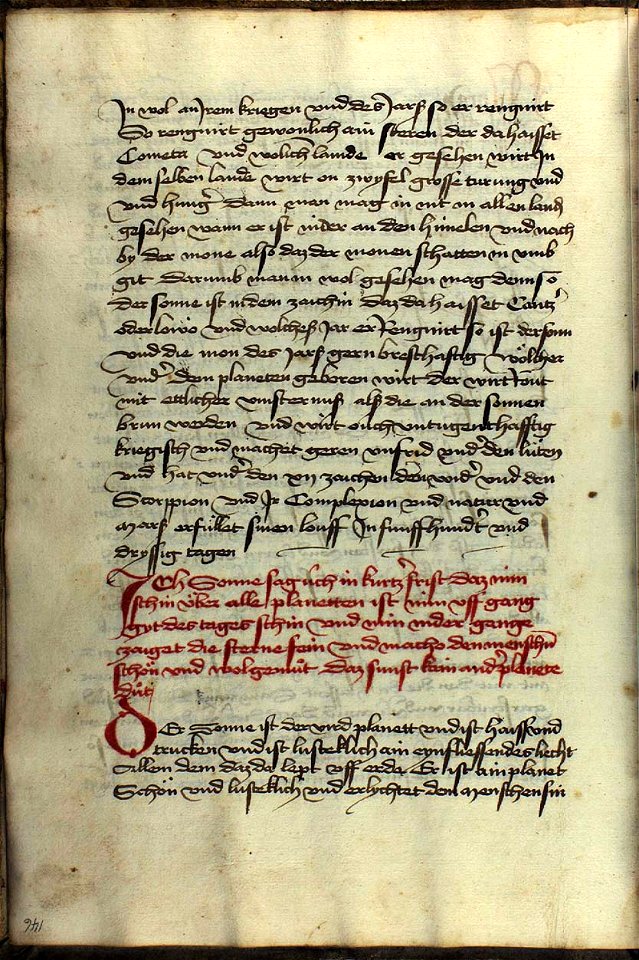 In wol an Irem kriegen vnd des Jars so er rengnirt
So rengnirt gewonlich ain steren der da haisset
Cometa vnd wolichem lande er gesehen wirt In
dem selben lande wirt on zwyfel grosse turung vnd
vnd hunger dann man mag in nit in allen land
gesehen wann er ist nider an den himelen vnd nach
by der mone also daz der monen schatten in vmb
git darumb man in wol gesehen mag denn so
der sonne ist in dem zaichin daz da haisset Cantzer
oder lowo vnd wolches Jar er Rengnirt so ist der sonn
vnd die mon des Jars gern bresthafftig wölcher
vnder dem planeten geboren wirt der wirt
mit ettlicher vinsternuss alss die an der sonnen
brun werden vnd wirt ouch vntugenthafftig
kriegisch vnd machet geren vnfrid vnder den lüten
vnd hat vnder den xij zaichen den wider vnd den
Scorppion vnd Ir Complexion vnd natur vnd
Mars erfüllet sinen louff In funffhundert vnd
dryssig tagen
Ich Sonne sag üch in kurtzer frist daz min
schin über alle planetten ist min vff gang
gyt des tages schin vnd min nider gange
zaiget die sterne fein vnd macho den menschen
schön vnd wolgemüt daz sunst kain ander planete
düt
Der Sonne ist der vierd planett vnd ist haiss vnd
trucken vnd ist lusteklich ain eynfliessendes liecht
Allen dem daz da lept vff erde Er ist ain planet
Schön vnd lusteklich vnd erlychtet den menschen sin
146